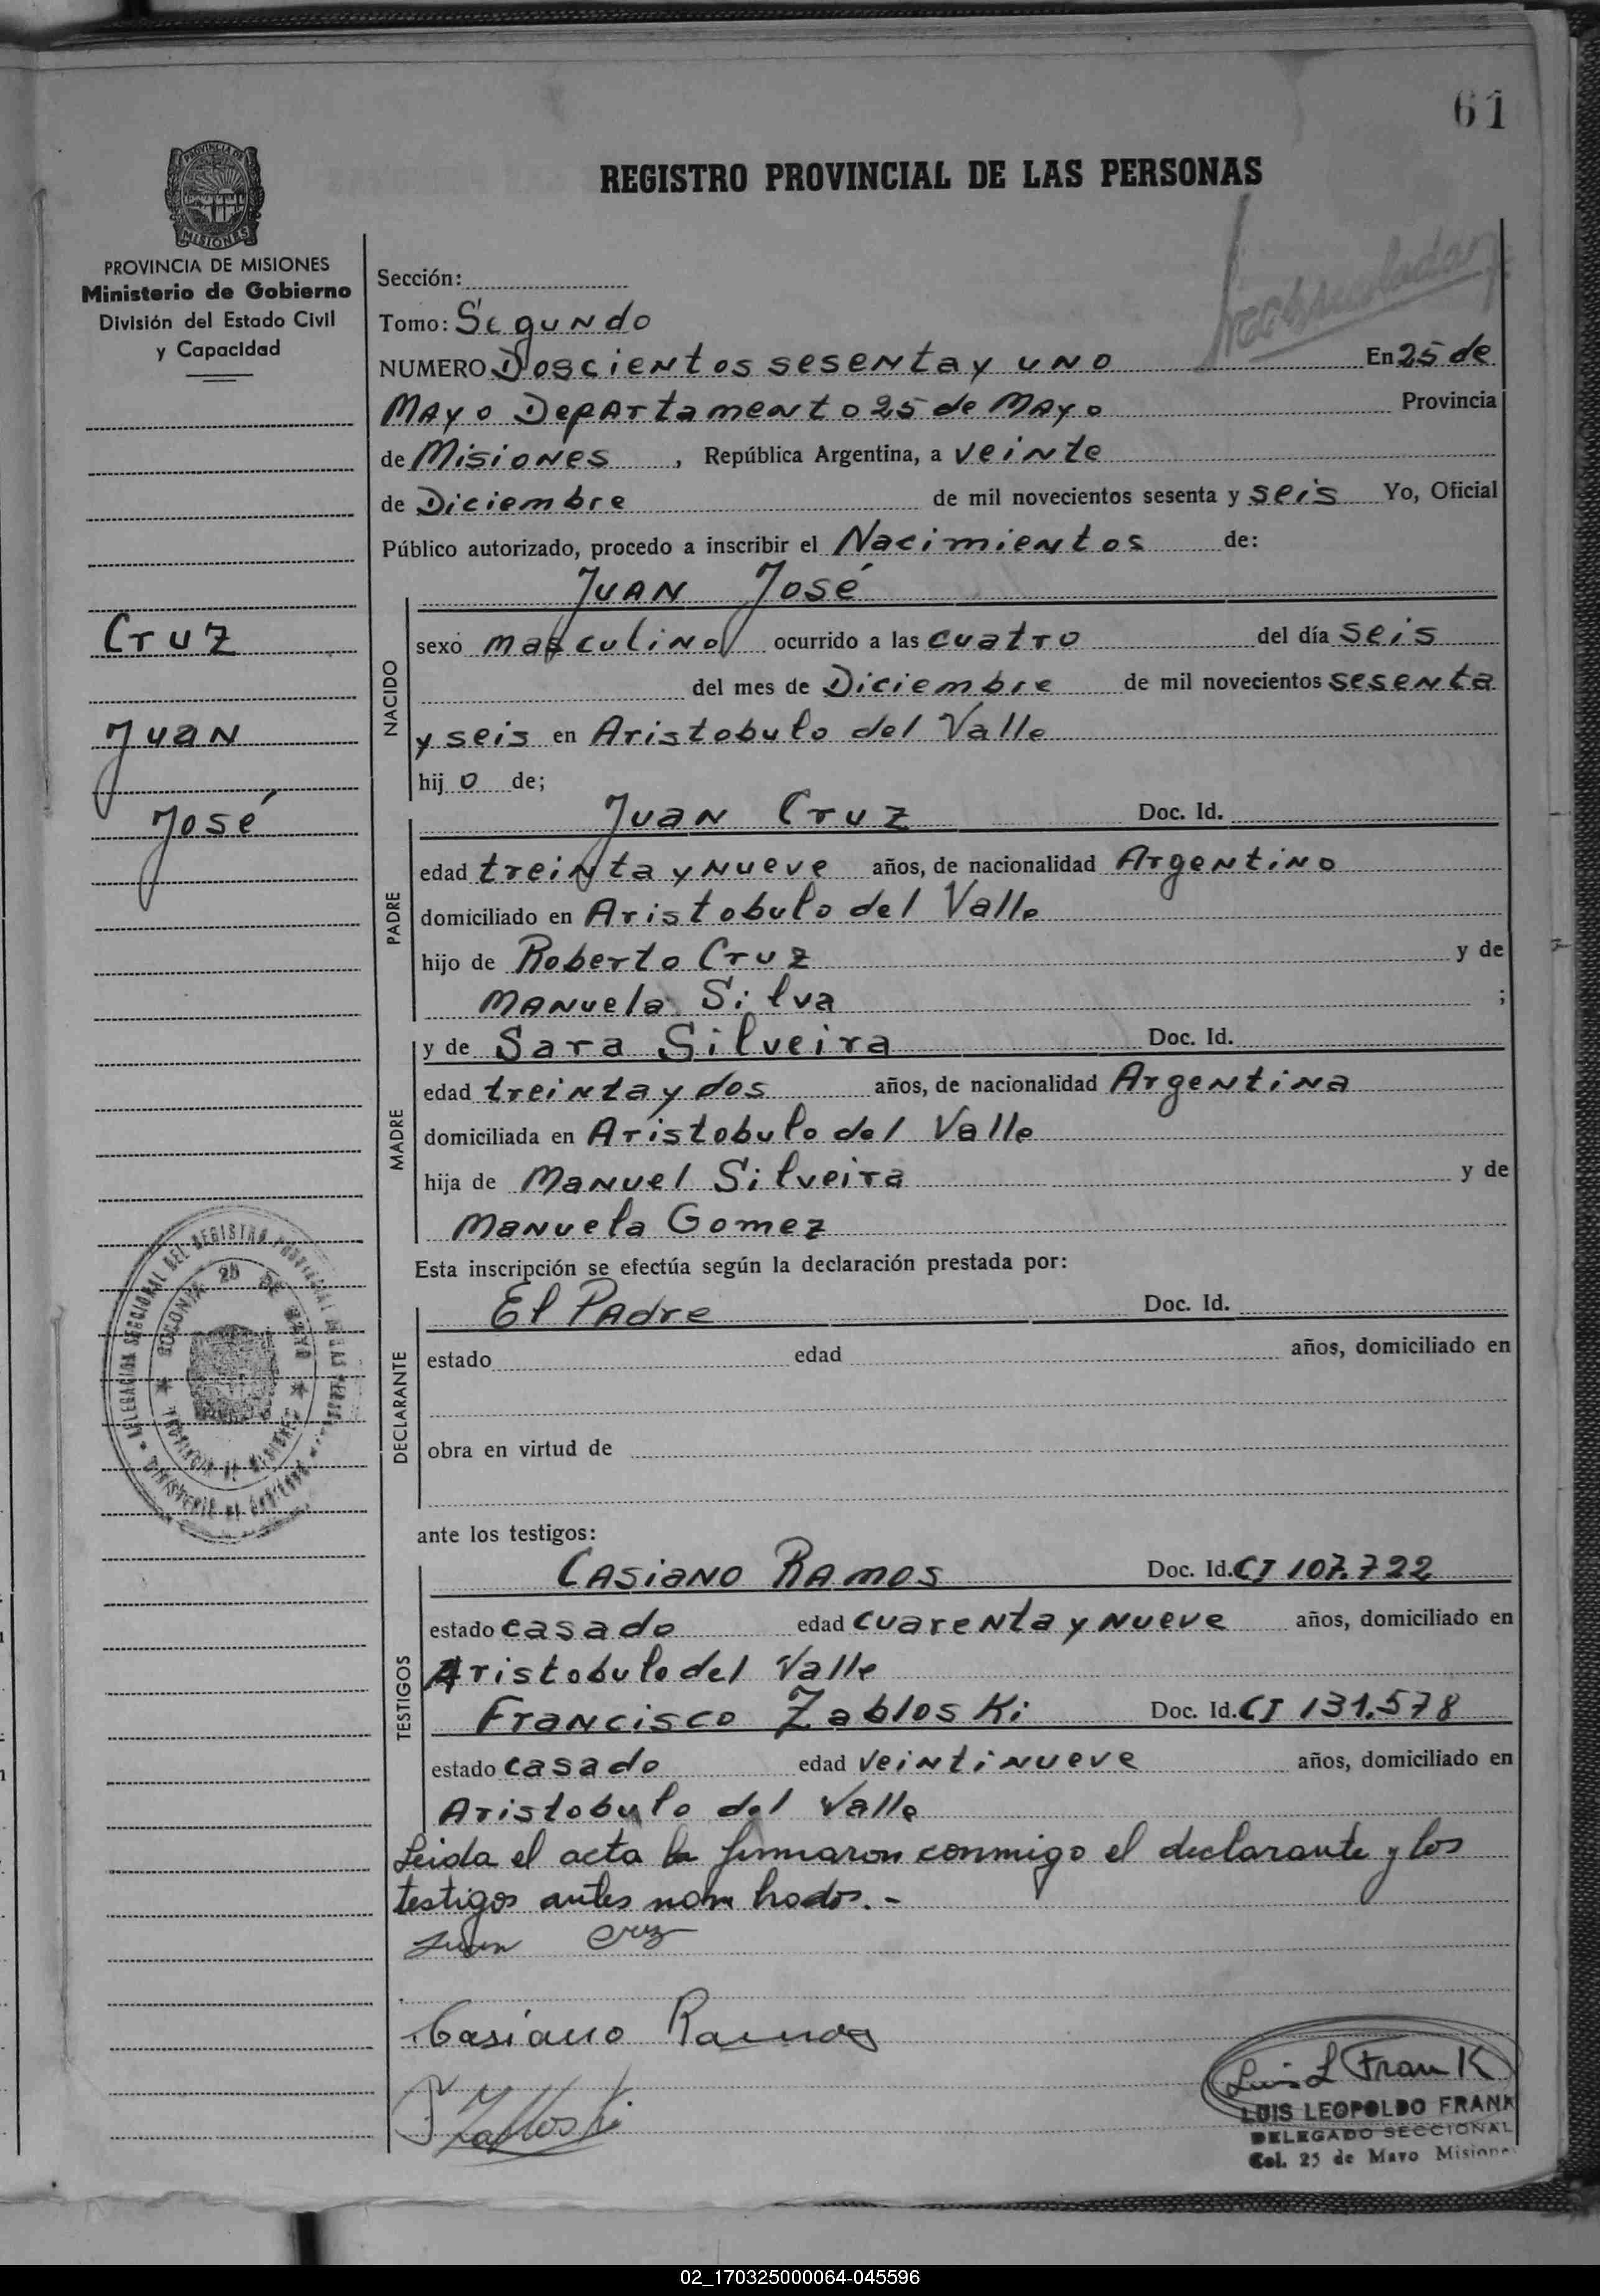 61
REGISTRO PROVINCIAL DE LAS PERSONAS
PROVINCIA DE
MISIONES
PROVINCIA DE MISIONES
Ministerio de Gobierno
División del Estado Civil
y Capacidad
Cruz
Juan
José
Sección:
Tomo: Segundo
NUMERO Doscientos sesenta y uno En 25 de
Mayo Departamento 25 de Mayo Provincia
de Misiones , República Argentina, a veinte
de Diciembre de mil novecientos sesenta y seis Yo, Oficial
Público autorizado, procedo a inscribir el Nacimientos de:
Juan José
NACIDO
sexo masculino ocurrido a las cuatro del día seis
del mes de Diciembre de mil novecientos sesenta
y seis en Aristobulo del Valle
hij o de;
PADRE
Juan Cruz Doc. Id.
edad treinta y nueve años, de nacionalidad Argentino
domiciliado en Aristobulo del Valle
hijo de Roberto Cruz y de
Manuela Silva ;
MADRE
y de Sara Silveira Doc. Id.
edad treinta y dos años, de nacionalidad Argentina
domiciliada en Aristobulo del Valle
hija de Manuel Silveira y de
Manuela Gomez
Esta inscripción se efectúa según la declaración prestada por:
DECLARANTE
El Padre Doc. Id.
estado edad años, domiciliado en
obra en virtud de
ante los testigos:
TESTIGOS
Casiano Ramos Doc. Id. CI 107.722
estado casado edad cuarenta y nueve años, domiciliado en
Aristobulo del Valle
Francisco Zabloski Doc. Id. CI 131.578
estado casado edad veintinueve años, domiciliado en
Aristobulo del Valle
Leida el acta la firmaron conmigo el declarante y los
testigos antes nombrados.-
Juan Cruz
Casiano Ramos
F Zabloski
Luis L Frank
LUIS LEOPOLDO FRANK
DELEGADO SECCIONAL
Col. 25 de Mayo Misiones
DELEGACION SECCIONAL DEL REGISTRO PROVINCIAL DE LAS
COLONIA 25 DE MAYO
PROVINCIA DE MISIONES
MINISTERIO DE GOBIERNO
02_170325000064-045596